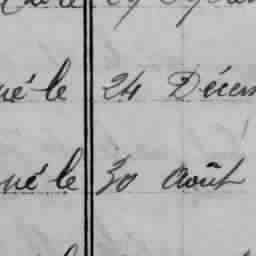 né le 24 Décem
né le 30 Août